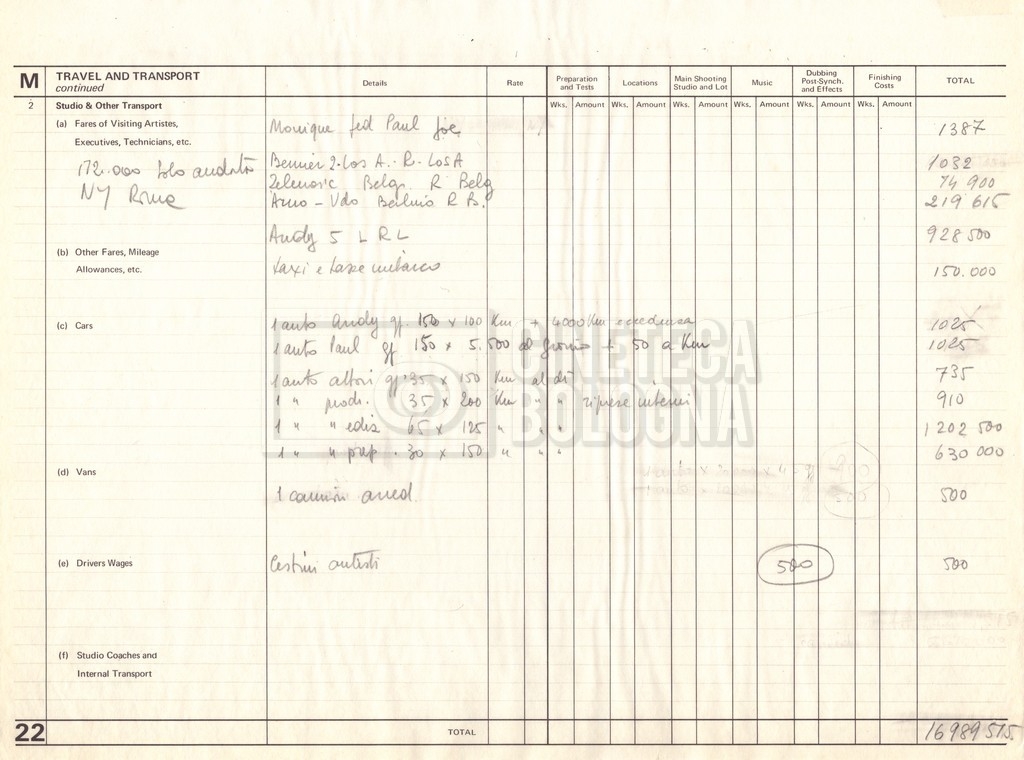 M TRAVEL AND TRANSPORT continued Details Rate Preparation and Tests Locations Main Shooting Studio and Lot Music Dubbing Post-Synch. and Effects Finishing Costs TOTAL
2 Studio & Other Transport Wks. Amount Wks. Amount Wks. Amount Wks. Amount Wks. Amount Wks. Amount
(a) Fares of Visiting Artistes, Monique Jed Paul Joe 1387
Executives, Technicians, etc.
172.000 solo andata Bernier 2 Los A. R. Los A 1032
NY Roma Belgr. R Belg 74 900
Arno - Udo Berlino R B. 219 615
Andy 5 L R L 928 500
(b) Other Fares, Mileage
Allowances, etc. taxi e tasse imbarco 150.000
(c) Cars 1 auto Andy gg. 150 x 100 Km + 4000 Km eccedenza 1025
1 auto Paul gg 150 x 5.500 al giorno + 50 a Km 1025
1 auto attori gg. 35 x 150 Km al dì 735
1 " prod. 35 x 200 Km " " riprese interni 910
1 " " ediz 65 x 125 " " " 1 202 500
1 " " prep. 30 x 150 " " " 630 000
(d) Vans
1 camion arred. 500
(e) Drivers Wages Cestini autisti 500 500
(f) Studio Coaches and
Internal Transport
22 TOTAL 16989515
CINETECA
BOLOGNA